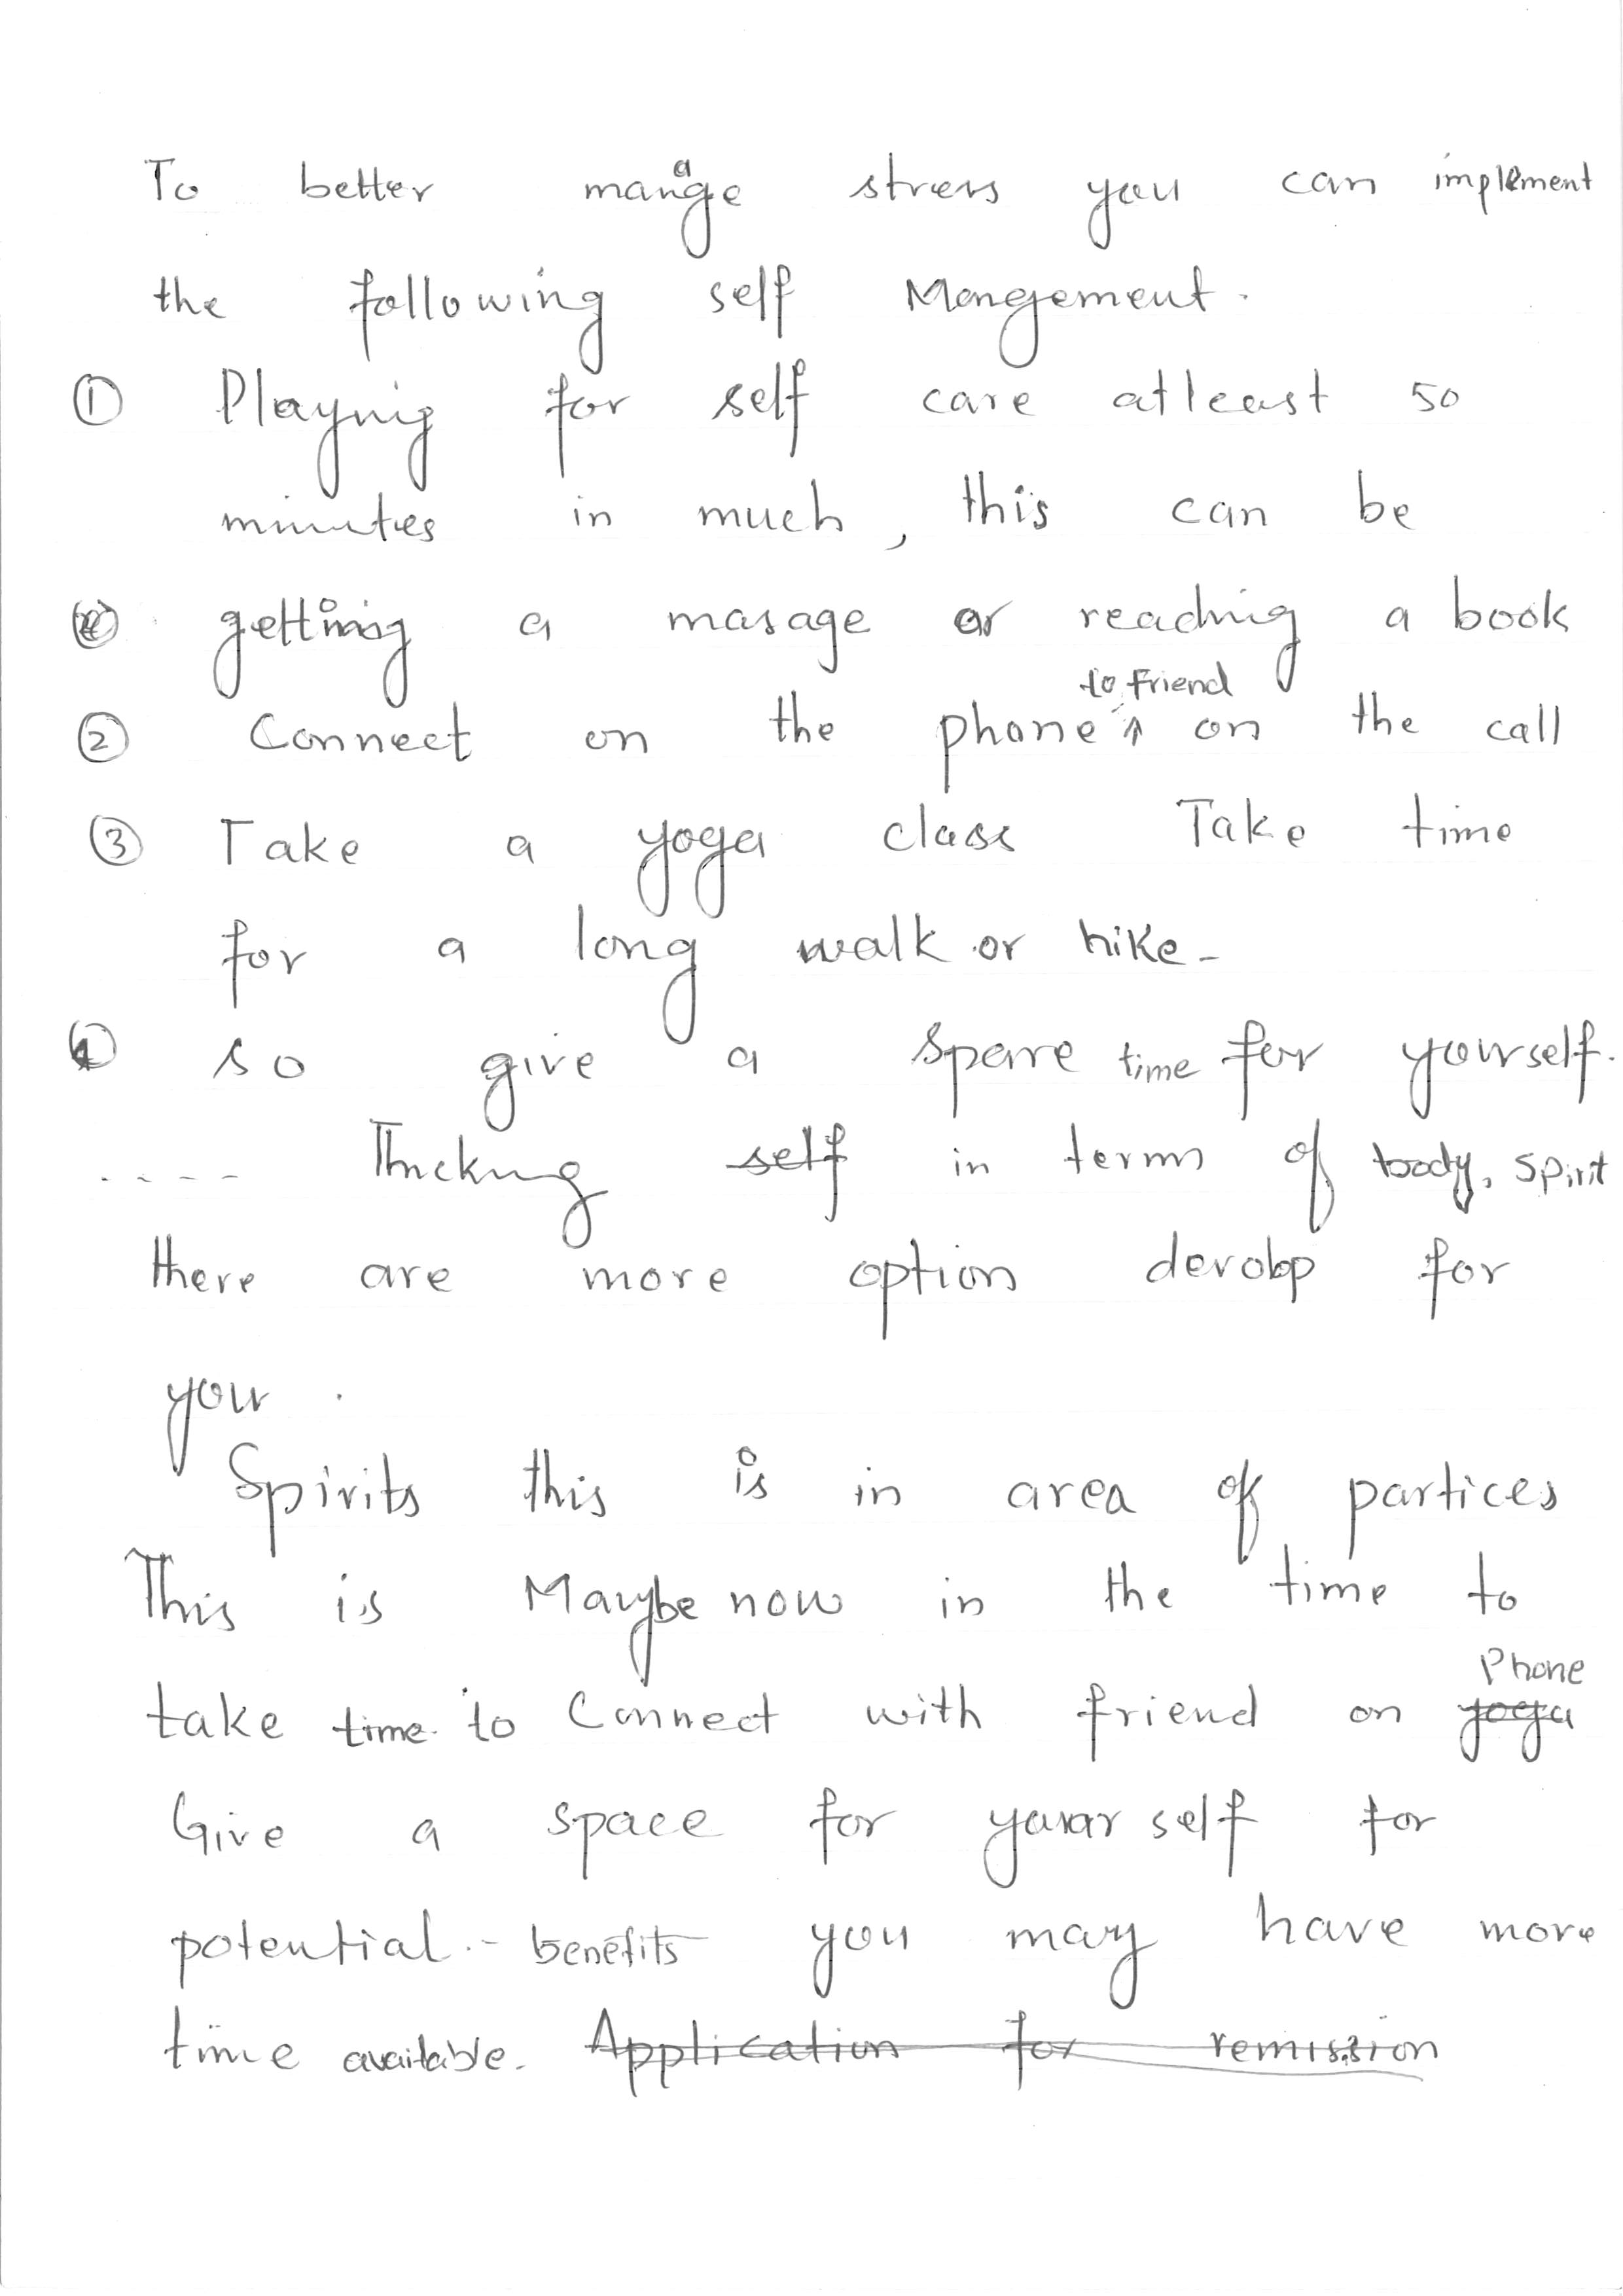 To better manage stress you can implement
the following self Mangement.
① Playing for self care atleast 50
minutes in much, this can be
getting a masage or reading a book
② Connect on the phone to friend on the call
③ Take a yoga class Take time
for a long walk or hike-
so give a spare time for yourself.
---- Thicking self in terms of body, spirit
there are more option devolop for
your.
Spirits this is in area of partices
This is Maybe now in the time to
take time to Connect with friend on yoga Phone
Give a space for yourar self for
potential - benefits you may have more
time available. Application for remission